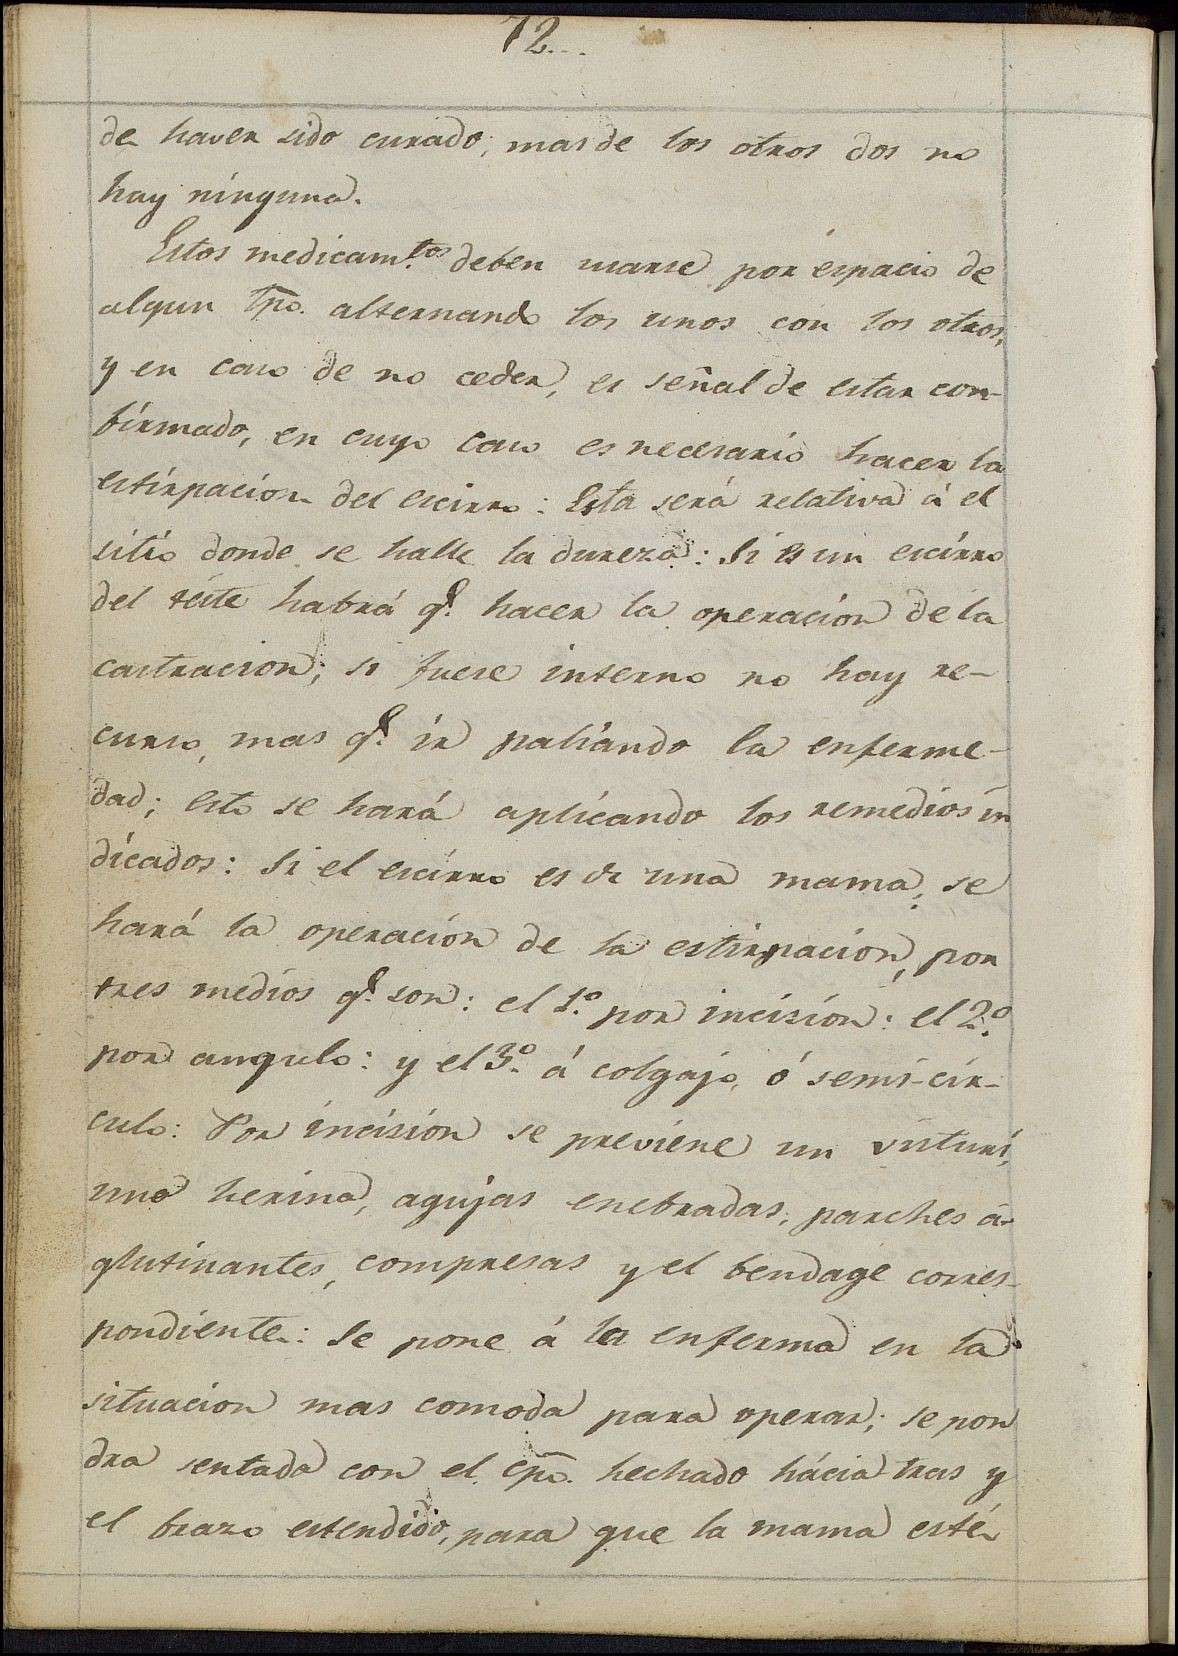 72...
de haver sido curado; mas de los otros dos no
hay ninguna.
Estos medicam.tos deben usarse por espacio de
algun tpō. alternando los unos con los otros,
y en caso de no ceder, es señal de estar con-
firmado, en cuyo caso es necesario hacer la
estirpacion del escirro: Esta será relativa á el
sitio donde se halle la dureza: Si es un escirro
del teste habrá q.e hacer la operacion de la
castracion; si fuese interno no hay re-
curso, mas q.e ir paliando la enferme-
dad; esto se hará aplicando los remedios in
dicados: Si el escirro es de una mama, se
hará la operacion de la estirpacion, por
tres medios q.e son: el 1.º por incision: el 2.º
por angulo: y el 3.º á colgajo, ó semi-cir-
culo: Por incision se previene un visturí,
una herina, agujas enebradas, parches a-
glutinantes, compresas y el bendage corres-
pondiente: Se pone á la enferma en la
situacion mas comoda para operar; se pon
dra sentada con el cpō. hechado hácia tras y
el brazo estendido, para que la mama esté